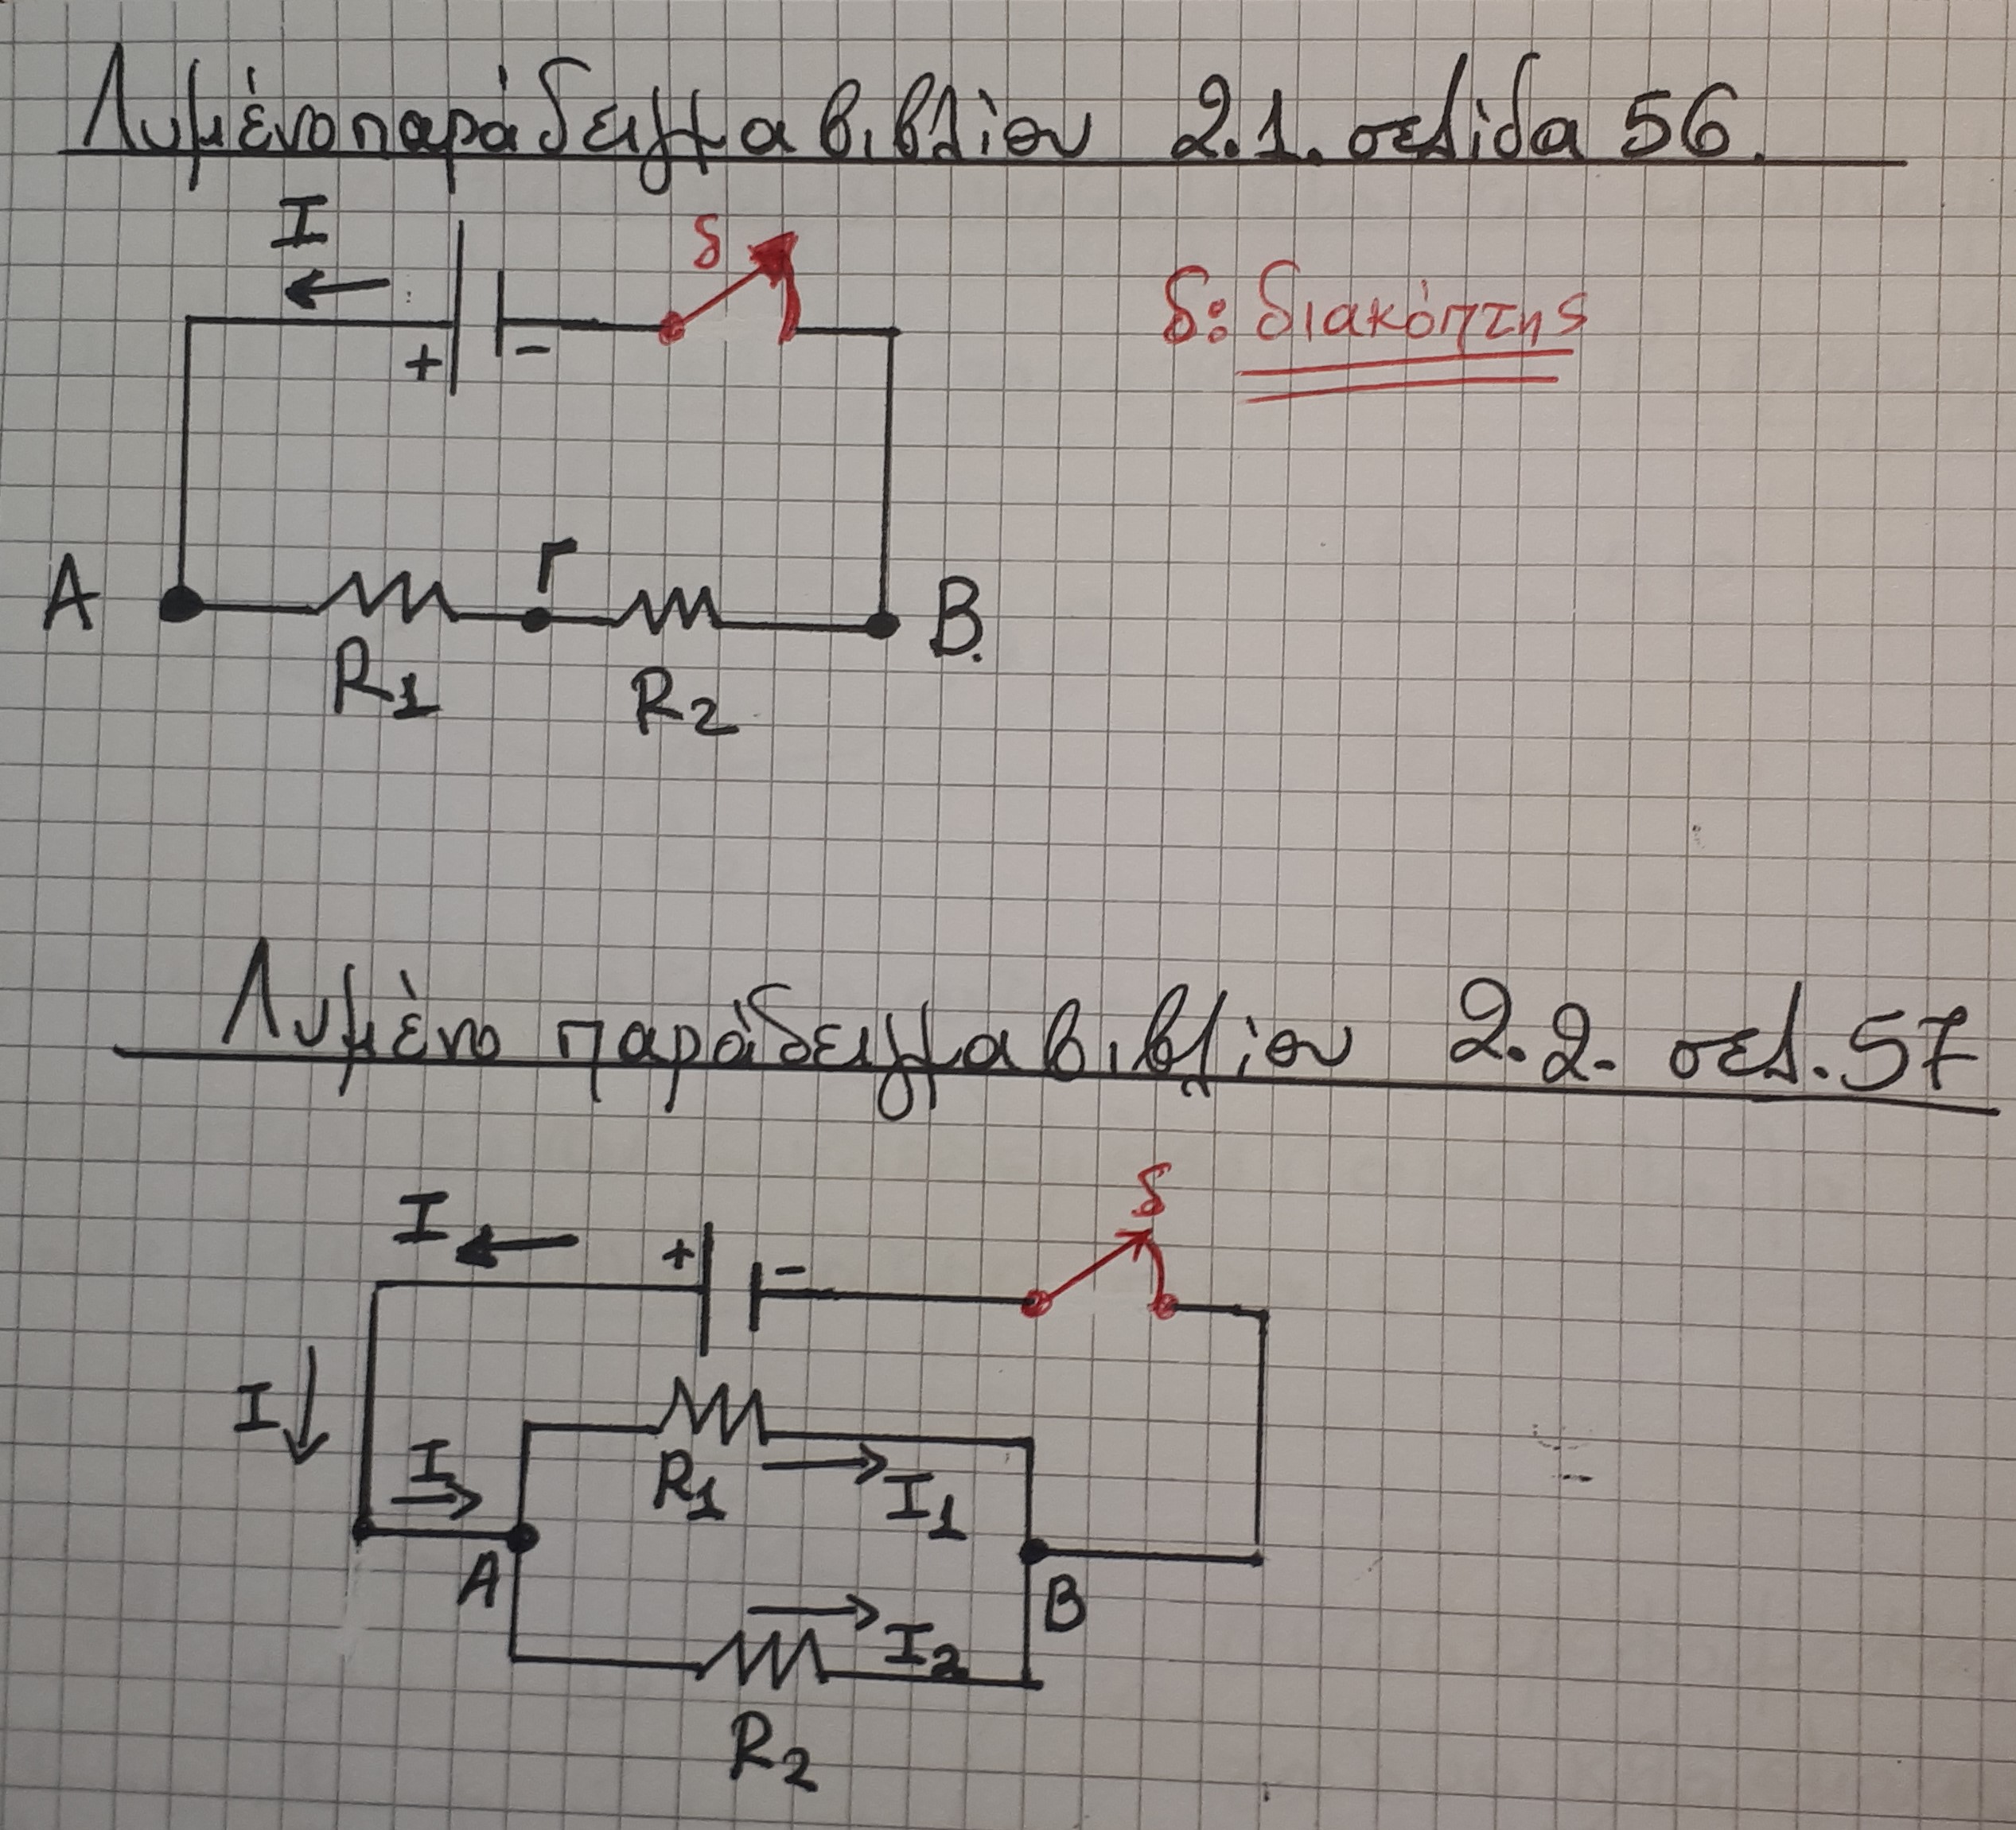 Λυμένο παράδειγμα βιβλίου 2.1. σελίδα 56.
I
δ
δ: διακόπτης
+ -
Γ
A B.
R1 R2
Λυμένο παράδειγμα βιβλίου 2.2. σελ. 57
δ
I + -
I
I R1 I1
A B
I2
R2